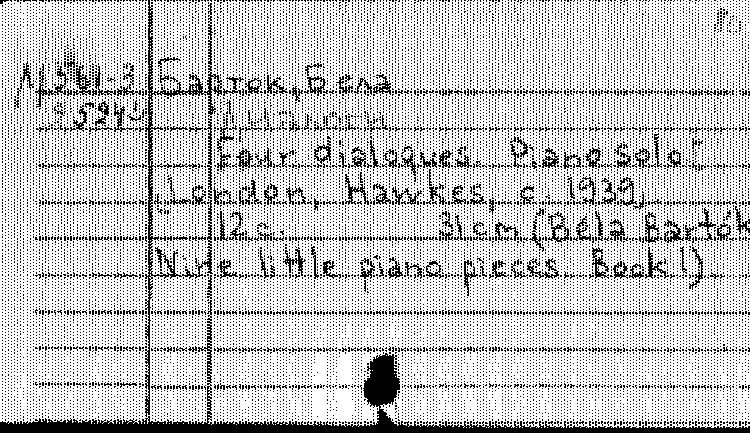 Барток, Бела
Диалоги
Four dialogues. Piano solo.
London, Hawkes, c. 1939.
12 c. 31 cm (Béla Bartók
Nine little piano pieces Book 1).